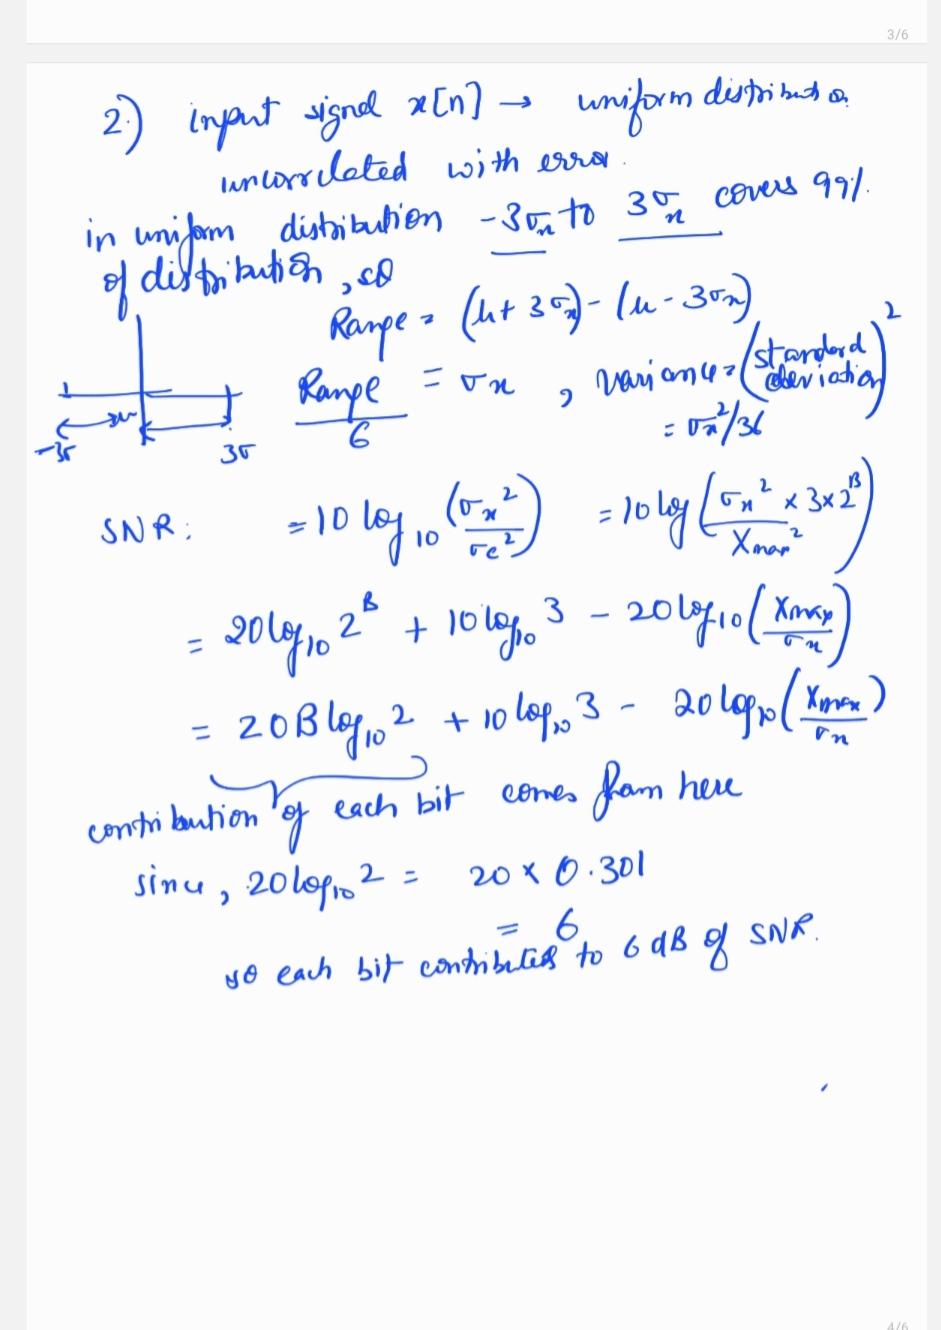 3/6
2.) input signal x[n] → uniform distribution
uncorrelated with error.
in uniform distribution -3σₓ to 3σₓ covers 99%
of distribution, so
Range = (μ + 3σₓ) - (μ - 3σₓ)
Range/6 = σₓ , variance = (standard deviation)²
= σₓ²/36
-3σ 3σ
SNR: = 10 log₁₀ (σₓ²/σe²) = 10 log (σₓ² × 3 × 2ᴮ / Xmax²)
= 20 log₁₀ 2ᴮ + 10 log₁₀ 3 - 20 log₁₀ (Xmax/σₓ)
= 20 B log₁₀ 2 + 10 log₁₀ 3 - 20 log₁₀ (Xmax/σₓ)
contribution of each bit comes from here
since, 20 log₁₀ 2 = 20 x 0.301
= 6
so each bit contributes to 6 dB of SNR.
4/6